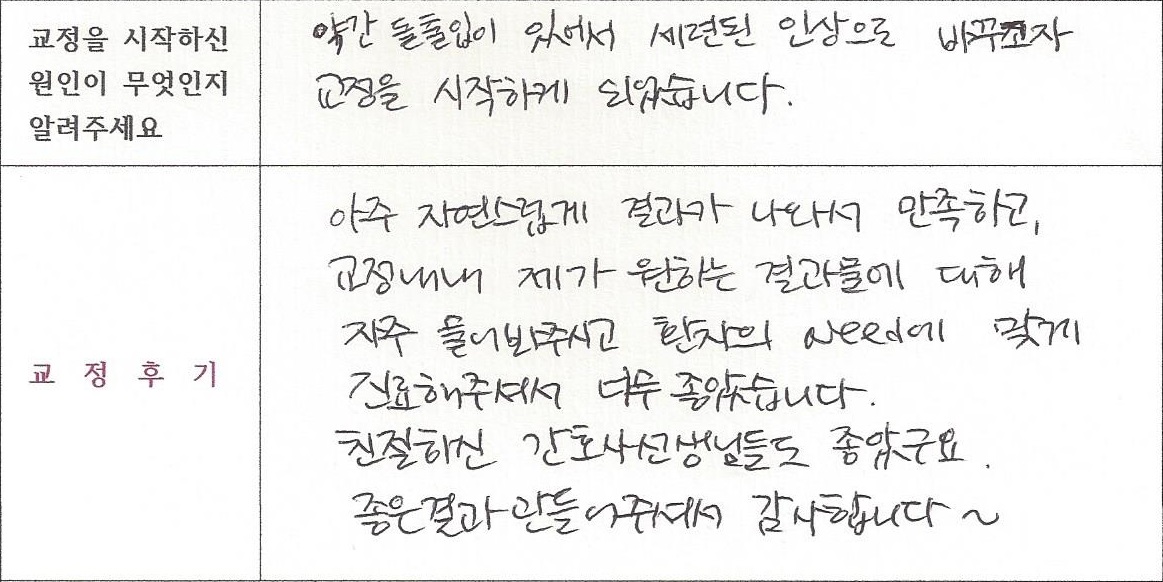 교정을 시작하신
원인이 무엇인지
알려주세요
약간 돌출입이 있어서 세련된 인상으로 바꾸고자
교정을 시작하게 되었습니다.
교정후기
아주 자연스럽게 결과가 나와서 만족하고,
교정내내 제가 원하는 결과물에 대해
자주 물어봐주시고 환자의 need에 맞게
진료해주셔서 너무 좋았습니다.
친절하신 간호사선생님들도 좋았구요.
좋은결과 만들어주셔서 감사합니다~